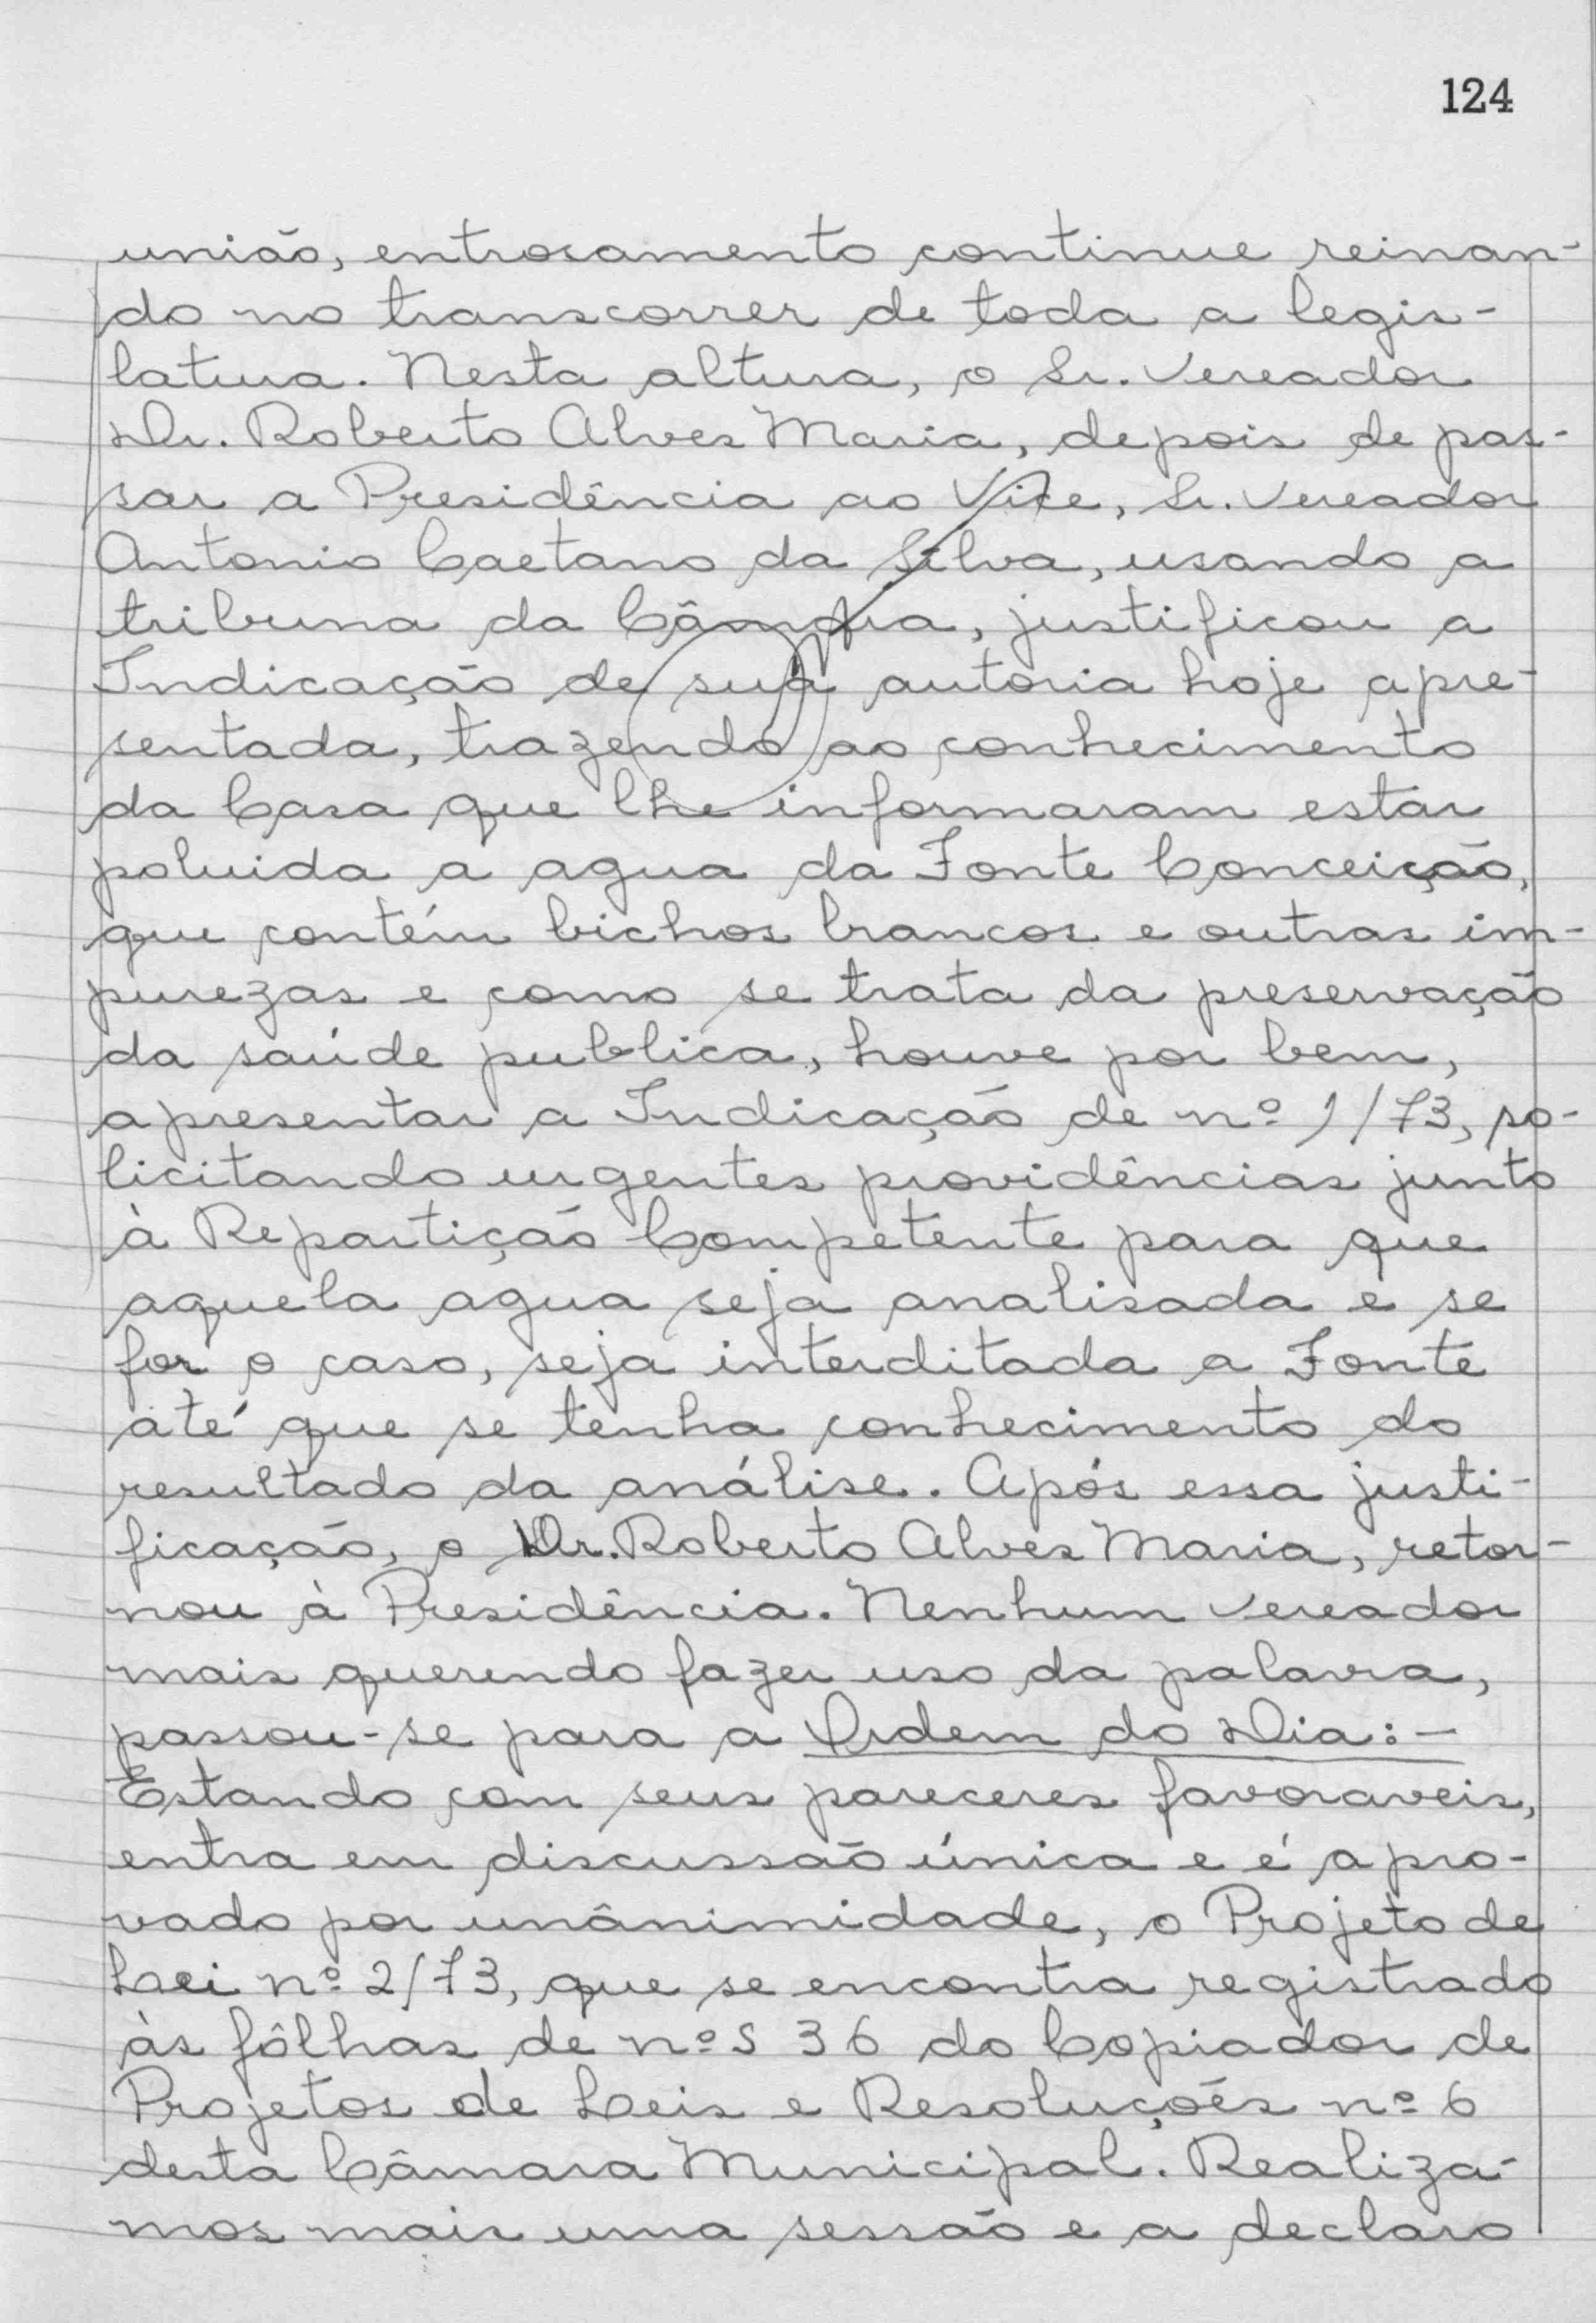 124
união, entrosamento continue reinan-
do no transcorrer de toda a legis-
latura. Nesta altura, o Sr. Vereador
Dr. Roberto Alves Maria, depois de pas-
sar a Presidência ao Vice, Sr. Vereador
Antonio Caetano da Silva, usando a
tribuna da Câmara, justificou a
Indicação de sua autoria hoje apre-
sentada, trazendo ao conhecimento
da Casa que lhe informaram estar
poluida a agua da Fonte Conceição,
que contém bichos brancos e outras im-
purezas e como se trata da preservação
da saúde publica, houve por bem,
apresentar a Indicação de nº 1/73, so-
licitando urgentes providências junto
à Repartição Competente para que
aquela agua seja analisada e se
for o caso, seja interditada a Fonte
até que se tenha conhecimento do
resultado da análise. Após essa justi-
ficação, o Dr. Roberto Alves Maria, retor-
nou à Presidência. Nenhum Vereador
mais querendo fazer uso da palavra,
passou-se para a Ordem do Dia:-
Estando com seus pareceres favoraveis,
entra em discussão única e é apro-
vado por unânimidade, o Projeto de
Lei nº 2/73, que se encontra registrado
às fôlhas de nºs 36 do Copiador de
Projetos de Leis e Resoluções nº 6
desta Câmara Municipal. Realiza-
mos mais uma sessão e a declaro